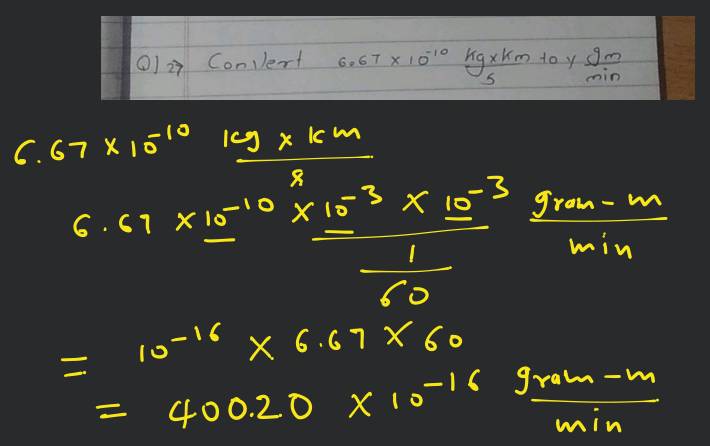 Q1 27 Convert 6.67 × 10⁻¹⁰ kg×km/s to y gm/min
6.67 × 10⁻¹⁰ kg × km/s
6.67 × 10⁻¹⁰ × 10⁻³ × 10⁻³/(1/60) gram-m/min
= 10⁻¹⁶ × 6.67 × 60
= 400.20 × 10⁻¹⁶ gram-m/min